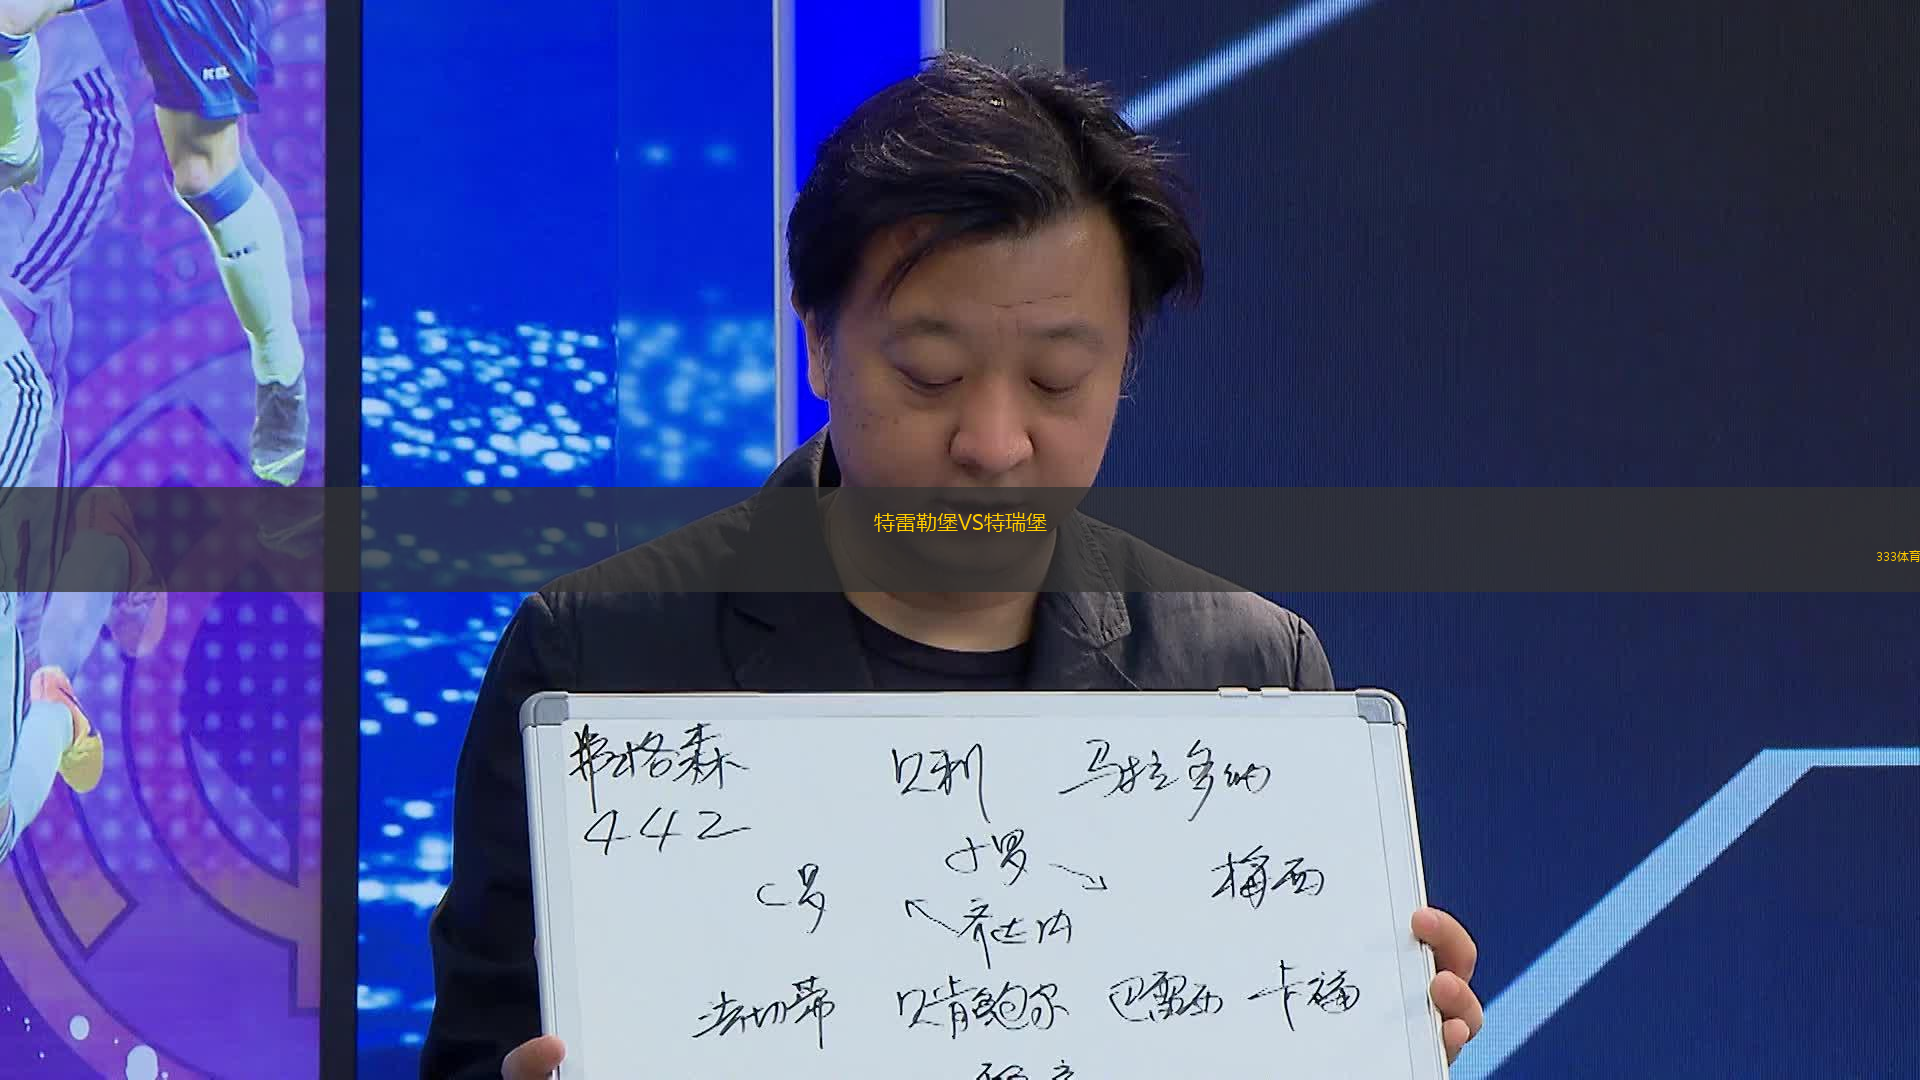 特雷勒堡VS特瑞堡
333体育
弗格森 贝利 马拉多纳
442
小罗
C罗 梅西
齐达内
法切蒂 贝肯鲍尔 巴雷西 卡福